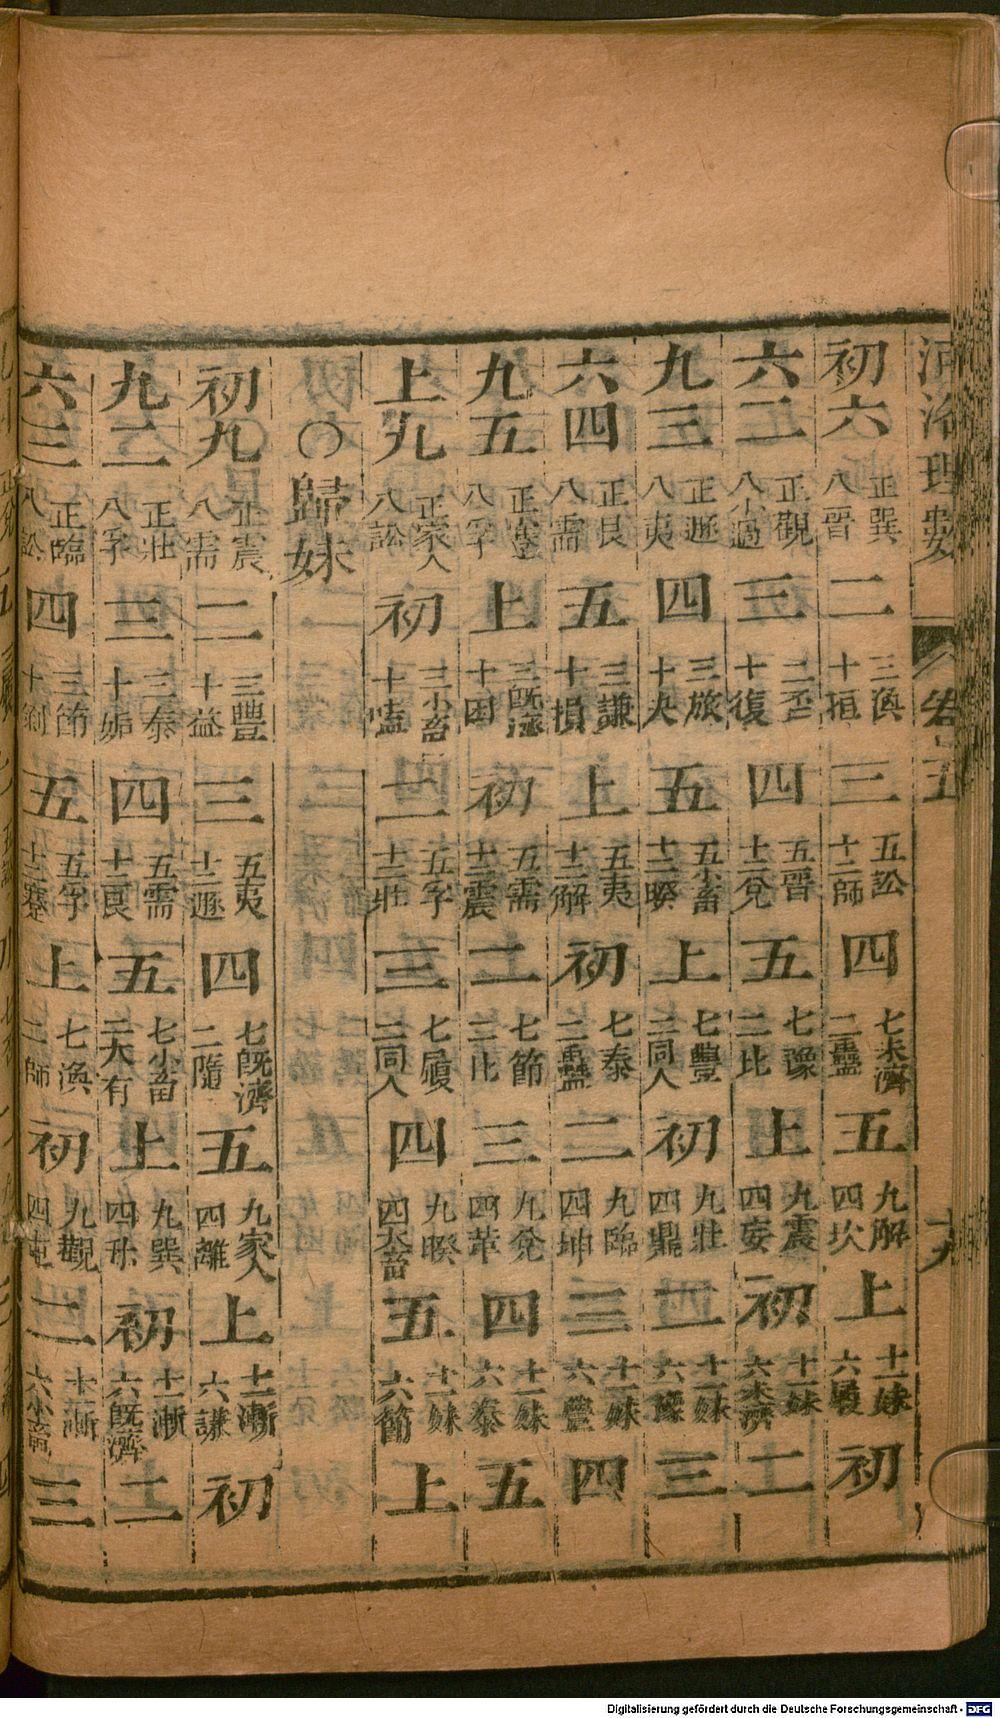 河洛理數 卷五 十九
初六 正巽 八晋 二 三渙 十恒 三 五訟 十二師 四 七未濟 二蠱 五 九解 四坎 上 十一妹 六履 初
六二 正觀 八小過 三 二否 十復 四 五晋 十二兌 五 七豫 二比 上 九震 四妄 初 十一妹 六未濟 二
九三 正遯 八夷 四 三旅 十夬 五 五小畜 十二睽 上 七豐 二同人 初 九壯 四鼎 二 十一妹 六豫 三
六四 正艮 八需 五 三謙 十損 上 五夷 十二解 初 七泰 二蠱 二 九臨 四坤 三 十一妹 六豐 四
九五 正蹇 八孚 上 三既濟 十困 初 五需 十二震 二 七節 二比 三 九兌 四革 四 十一妹 六泰 五
上九 正家人 八訟 初 三小畜 十嗑 二 五孚 十二壯 三 七履 二同人 四 九睽 四大畜 五 十一妹 六節 上
○歸妹
初九 正震 八需 二 三豐 十益 三 五夷 十二遯 四 七既濟 二隨 五 九家人 四離 上 十一漸 六謙 初
九二 正壯 八孚 三 三泰 十姤 四 五需 十二艮 五 七小畜 二大有 上 九巽 四 初 十一漸 六既濟 二
六三 正臨 八訟 四 三節 十剝 五 五孚 十二蹇 上 七渙 二師 初 九觀 四屯 二 十一漸 六小畜 三
Digitalisierung gefördert durch die Deutsche Forschungsgemeinschaft - DFG